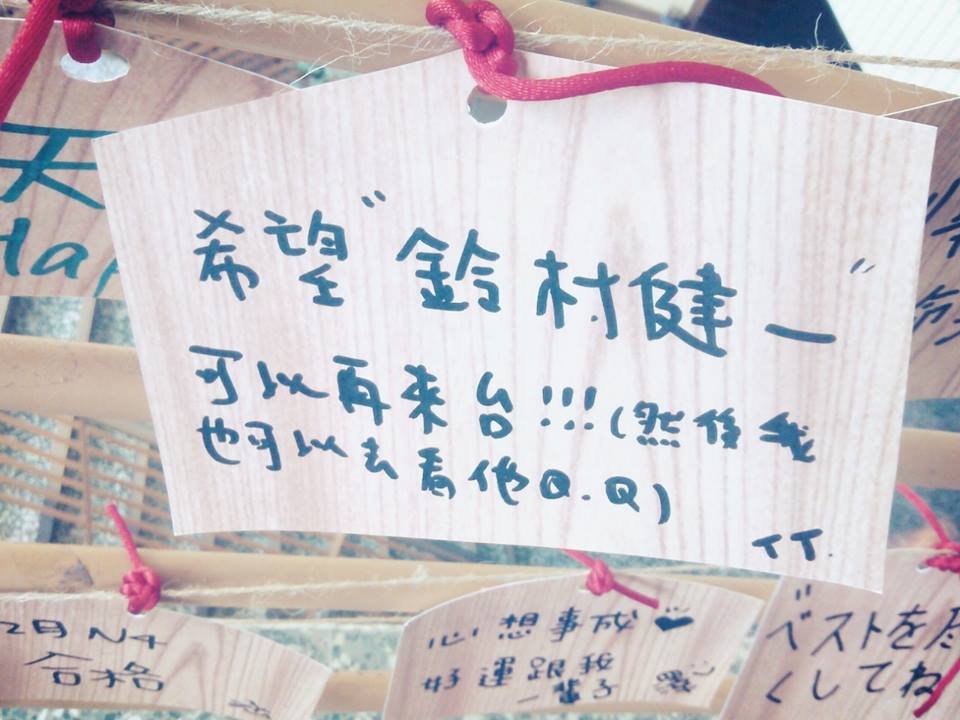 天
Ha
希望"鈴村健一"
可以再來台!!!(然後我
也可以去看他Q.Q)
TT.
2月N4
合格
心想事成
好運跟我
一輩子
"ベストを尽
くしてね